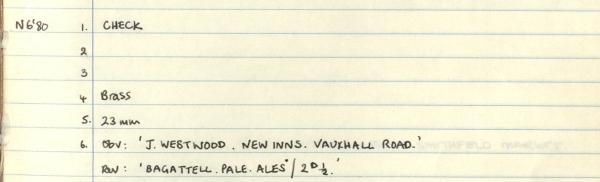 N6'80 1. CHECK
2
3
4 Brass
5. 23 mm
6. Obv: 'J. WESTWOOD. NEW INNS. VAUXHALL ROAD.'
Rev: 'BAGATTELL. PALE. ALES' / 2 D ½.'